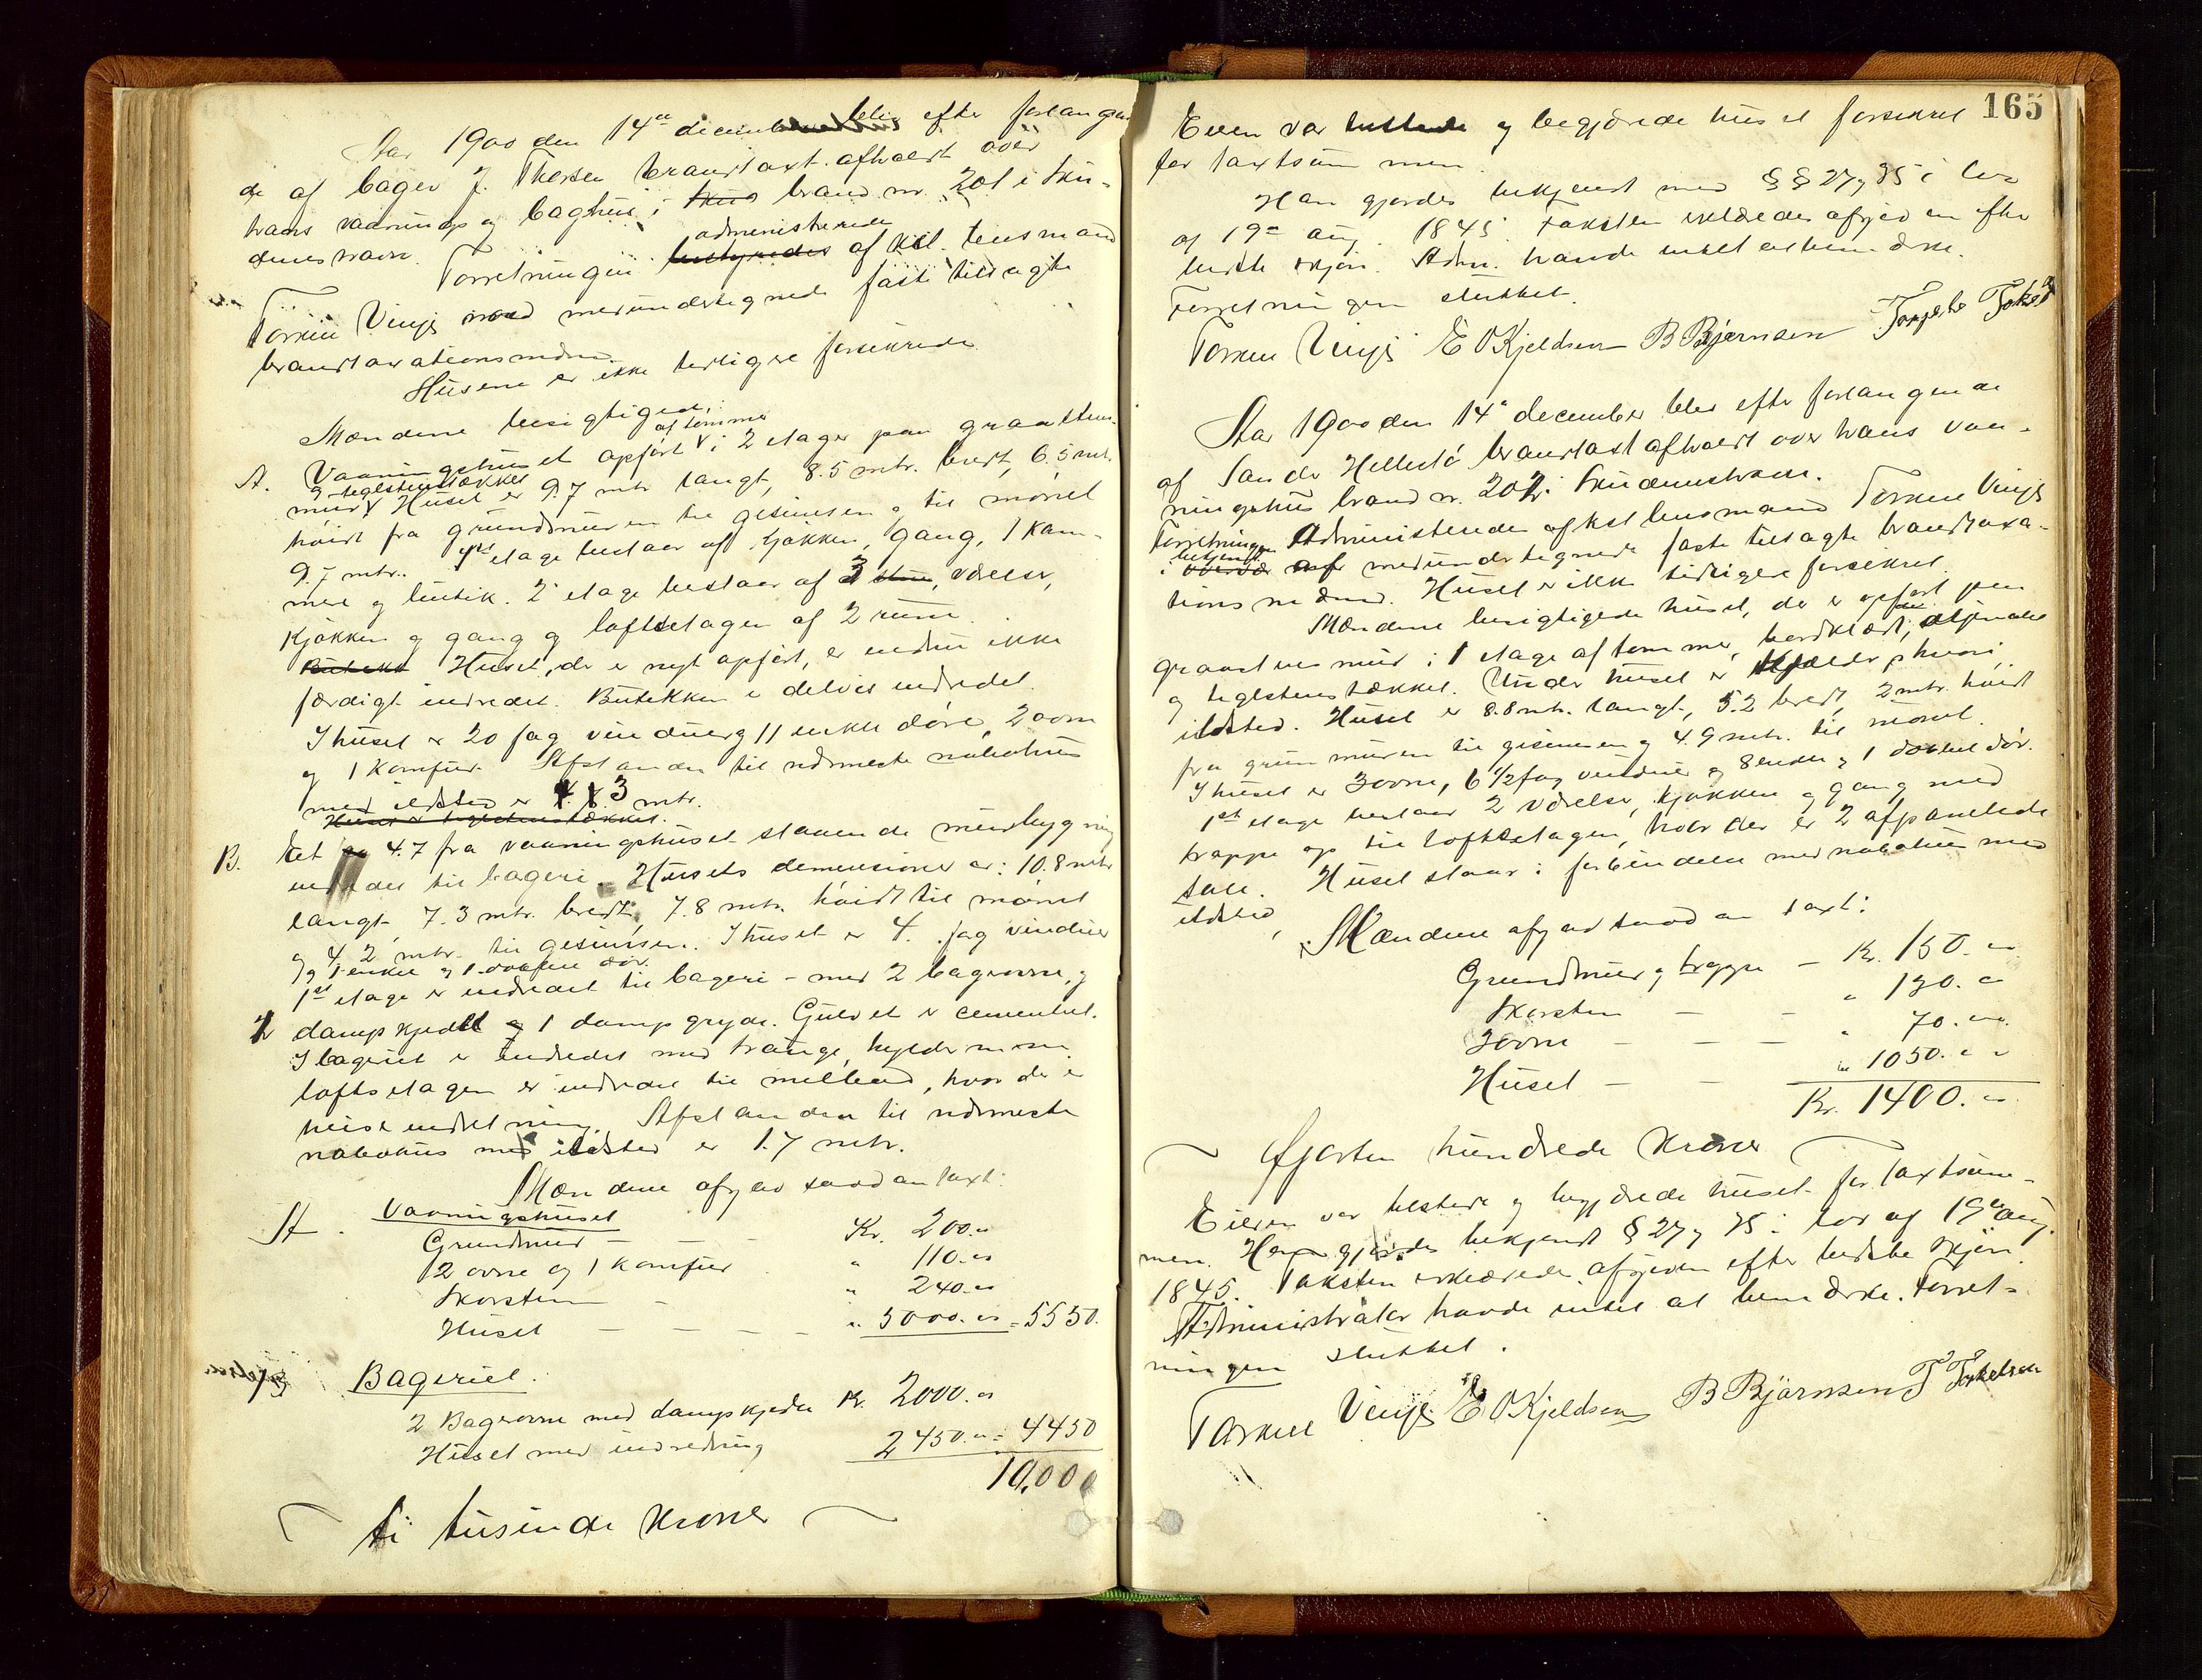 Aar 1900 den 14de december blev efter forlangen
de af bager J. Thorsen brandtaxt afholdt over
hans vaanings og baghus i Skus brand nr. 201 i Sku-
deneshavn. Forretningen bestyredes administreredes af kst. lensmand
Torkel Vinje med medundertegnede faste tilsagte
brandtaxationsmænd.
Husene er ikke tidligere forsikrede
Mændene besigtigede:
A. Vaaningshuset opført af tømmer i 2 etager paa graasten-
mur og teglstenstækket Huset er 9.7 mtr langt, 8.5 mtr. bredt, 6.5 mtr.
høidt fra grundmuren til gesimsen og til mønet
9.7 mtr. 1ste etage bestaar af kjøkken, gang, 1 kam-
mer og butik. 2 etage bestaar af 3 værelser,
kjøkken og gang og loftsetagen af 2 rum.
Huset, der er nyt opført, er endnu ikke
færdigt indredet. Butikken er delvis indredet.
I huset er 20 fag vinduer og 11 enkle døre, 2 ovne
og 1 komfur. Afstanden til nærmeste nabohus
med ildsted er 3 mtr.
Huset er teglstenstækket.
B. Et 4.7 fra vaaningshuset staaende murbygning
indredet til bageri. Husets dimensioner er: 10.8 mtr
langt, 7.3 mtr. bredt, 7.8 mtr. høidt til mønet
og 4.2 mtr. til gesimsen. I huset er 4 fag vinduer
og 1 enkel og 1 dobbelt dør.
1ste etage er indredet til bageri - med 2 bagerovne, og
2 dampkjedel og 1 dampgryde. Gulvet er cementeret.
I bageriet er indredet med trauge, hylder m.m.
loftsetagen er indredet til melbod, hvor der er
heiseindretning. Afstanden til nærmeste
nabohus med ildsted er 1.7 mtr.
Mændene afgav saadan taxt:
A. Vaaningshuset
Grundmur - - - Kr. 200.00
2 ovne og 1 komfur " 110.00
Skorsten - " 240.00
Huset - - - - " 5000.00 = 5550.
Bageriet.
2 Bagerovne med dampkjedel Kr. 2000.00
Huset med indredning 2450.00 = 4450
10,000
ti tusinde kroner
165
Eieren var tilstede og begjærede huset forsikret
for taxtsummen.
Han gjordes bekjendt med §§ 27 og 35 i lov
af 19de aug. 1845. Taksten erklæredes afgiven efter
bedste skjøn. Adm. havde intet at bemærke.
Forretningen sluttet.
Torkel Vinje E O Kjeldsen B Bjørnsen
Aar 1900 den 14de december blev efter forlangende
af Sander Hellestø brandtaxt afholdt over hans vaa-
ningshus brand nr. 202 i Skudeneshavn.
Forretningen Administreredes af kst lensmand Torkel Vinje
i medundertegnede faste tilsagte brandtaxa-
tionsmænd. Huset er ikke tidligere forsikret.
Mændene besigtigede huset, der er opført paa
graastensmur i 1 etage af tømmer, bordklædt,
og teglstenstækket. Under huset er kjælder, hvori
ildsted. Huset er 8.8 mtr. langt, 5.2 bredt, 2 mtr. høidt
fra grunmuren til gesimsen og 4.9 mtr. til mønet.
I huset er 3 ovne, 6 1/2 fag vinduer og 8 enkle og 1 dobbel dør.
1ste etage bestaar 2 værelser, kjøkken og gang med
trappe op til loftsetagen, hvor der er 2 afpanelede
sale. Huset staar i forbindelse med nabohus med
ildsted,
Mændene afgav saadan taxt:
Grundmur og trappe - Kr. 150.00
Skorsten - - " 130.00
3 ovne - - - " 70.00
Huset - - " 1050.00
Kr. 1400.00
fjorten hundrede kroner
Eieren var tilstede og begjærede huset for taxtsum-
men. Han gjordes bekjendt § 27 og 35 i lov af 19de aug.
1845. Taksten erklæredes afgiven efter bedste skjøn.
Administrator havde intet at bemærke. Forret-
ningen sluttet.
Torkel Vinje E O Kjeldsen B Bjørnsen T T Torkelsen